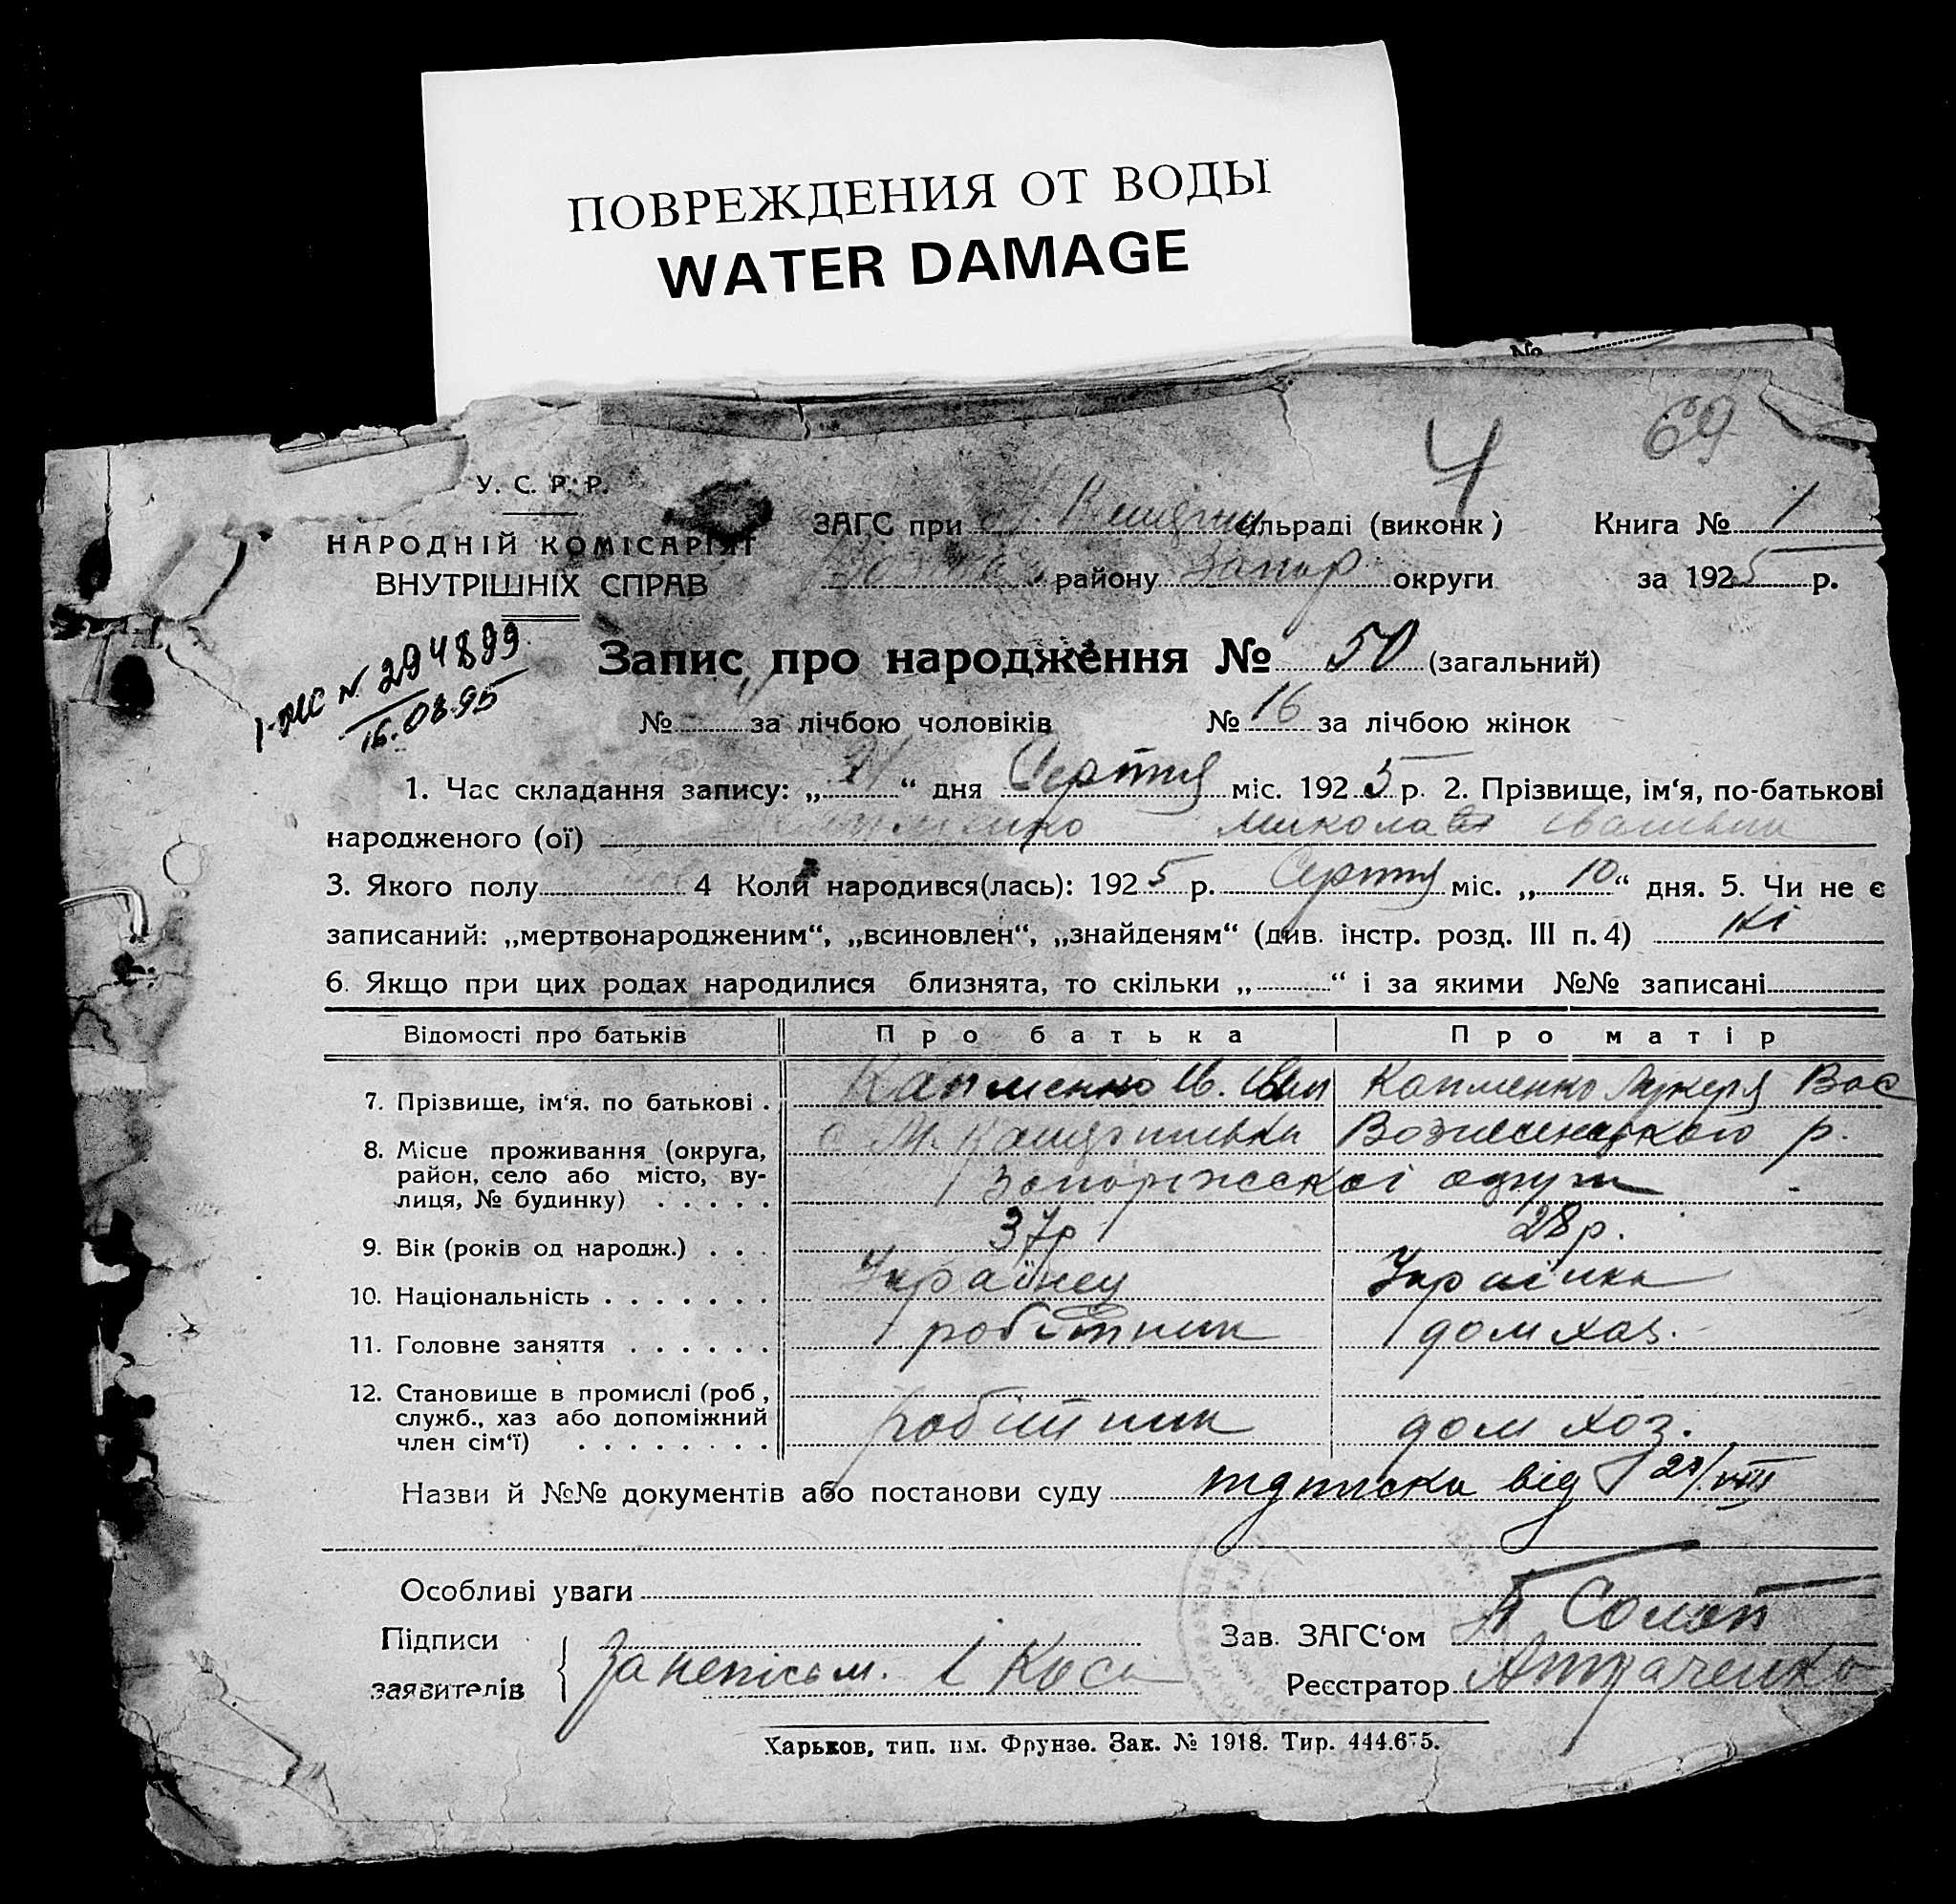 ПОВРЕЖДЕНИЯ ОТ ВОДЫ
WATER DAMAGE
№
4 69
У. С. Р. Р.
НАРОДНІЙ КОМІСАРІЯТ
ВНУТРІШНІХ СПРАВ
ЗАГС при сільраді (виконк) Книга № 1
району Запор округи за 1925 р.
№ 294899
16.08.95
Запис про народження № 50 (загальний)
№ за лічбою чоловіків № 16 за лічбою жінок
1. Час складання запису: „21“ дня Серпня міс. 1925 р. 2. Прізвище, ім‘я, по-батькові
народженого (ої) Микола
3. Якого полу 4 Коли народився(лась): 1925 р. Серпня міс. „10“ дня. 5. Чи не є
записаний: „мертвонародженим“, „всиновлен“, „знайденям“ (див. інстр. розд. III п. 4) ні
6. Якщо при цих родах народилися близнята, то скільки „ “ і за якими №№ записані
Відомості про батьків Про батька Про матір
7. Прізвище, ім‘я, по батькові . Капменко Ів. Іван Капменко Лукеря Вас
8. Місце проживання (округа, район, село або місто, вулиця, № будинку) . . . . . с М. Вознесенського р.
Запоріжської округи
9. Вік (років од народж.) . . . 37р 28р.
10. Національність . . . . . . . Українец Українка
11. Головне заняття . . . . . . робітник дом хаз.
12. Становище в промислі (роб, служб., хаз або допоміжний член сім‘ї) . . . . . . . . робітник дом хоз.
Назви й №№ документів або постанови суду підписка від 21/VIII
Особливі уваги
Підписи
заявителів За неписьм. І Коса
Зав. ЗАГС‘ом
Реєстратор
Харьков, тип. им. Фрунзе. Зак. № 1918. Тир. 444.675.